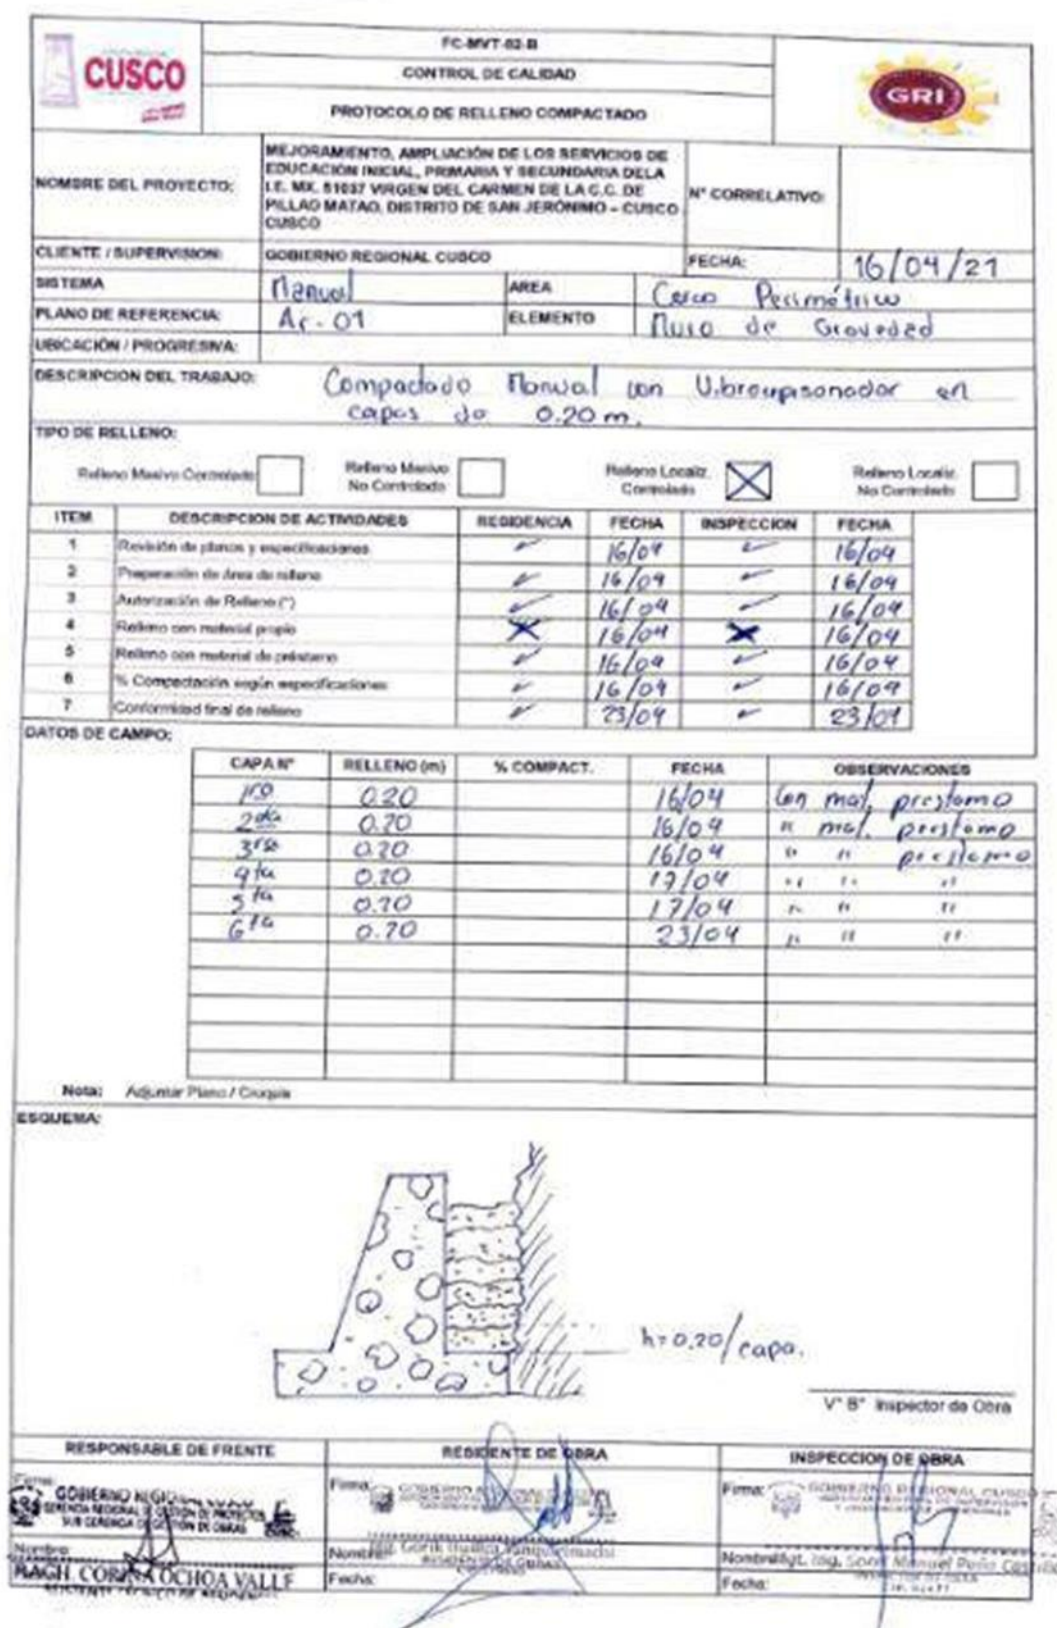 CUSCO
FC-MVT-02-B
CONTROL DE CALIDAD
PROTOCOLO DE RELLENO COMPACTADO
GRI
NOMBRE DEL PROYECTO:
MEJORAMIENTO, AMPLIACIÓN DE LOS SERVICIOS DE
EDUCACIÓN INICIAL, PRIMARIA Y SECUNDARIA DELA
I.E. MX. 51037 VIRGEN DEL CARMEN DE LA C.C. DE
PILLAO MATAO, DISTRITO DE SAN JERÓNIMO – CUSCO
CUSCO
N° CORRELATIVO:
CLIENTE / SUPERVISION: GOBIERNO REGIONAL CUSCO FECHA: 16/04/21
SISTEMA Manual AREA Cerco Perimétrico
PLANO DE REFERENCIA: Ar-01 ELEMENTO Muro de Gravedad
UBICACIÓN / PROGRESIVA:
DESCRIPCION DEL TRABAJO: Compactado Manual con Vibroapisonador en
capas de 0.20 m.
TIPO DE RELLENO:
Relleno Masivo Controlado
Relleno Masivo
No Controlado
Relleno Localiz.
Controlado
Relleno Localiz.
No Controlado
ITEM DESCRIPCION DE ACTIVIDADES RESIDENCIA FECHA INSPECCION FECHA
1 Revisión de planos y especificaciones ✓ 16/04 ✓ 16/04
2 Preparación de Área de relleno ✓ 16/04 ✓ 16/04
3 Autorización de Relleno (*) ✓ 16/04 ✓ 16/04
4 Relleno con material propio X 16/04 X 16/04
5 Relleno con material de préstamo ✓ 16/04 ✓ 16/04
6 % Compactación según especificaciones ✓ 16/04 ✓ 16/04
7 Conformidad final de relleno ✓ 23/04 ✓ 23/04
DATOS DE CAMPO:
CAPA N° RELLENO (m) % COMPACT. FECHA OBSERVACIONES
1ro 0.20 16/04 Con mat. prestamo
2da 0.20 16/04 " mat. prestamo
3ra 0.20 16/04 " " prestamo
4ta 0.20 17/04 " " "
5ta 0.20 17/04 " " "
6ta 0.20 23/04 " " "
Nota: Adjuntar Plano / Croquis
ESQUEMA:
h=0.20/capa.
V° B° Inspector de Obra
RESPONSABLE DE FRENTE RESIDENTE DE OBRA INSPECCION DE OBRA
Firma: Firma: Firma:
GOBIERNO REGIONAL CUSCO
GERENCIA REGIONAL DE GESTIÓN DE PROYECTOS
SUB GERENCIA DE GESTIÓN DE OBRAS
GOBIERNO REGIONAL CUSCO
GOBIERNO REGIONAL CUSCO
Nombre Nombre: Nombre:
MAGH. CORINA OCHOA VALLE
RESIDENTE DE OBRAS
Manuel Peña
Fecha: Fecha: